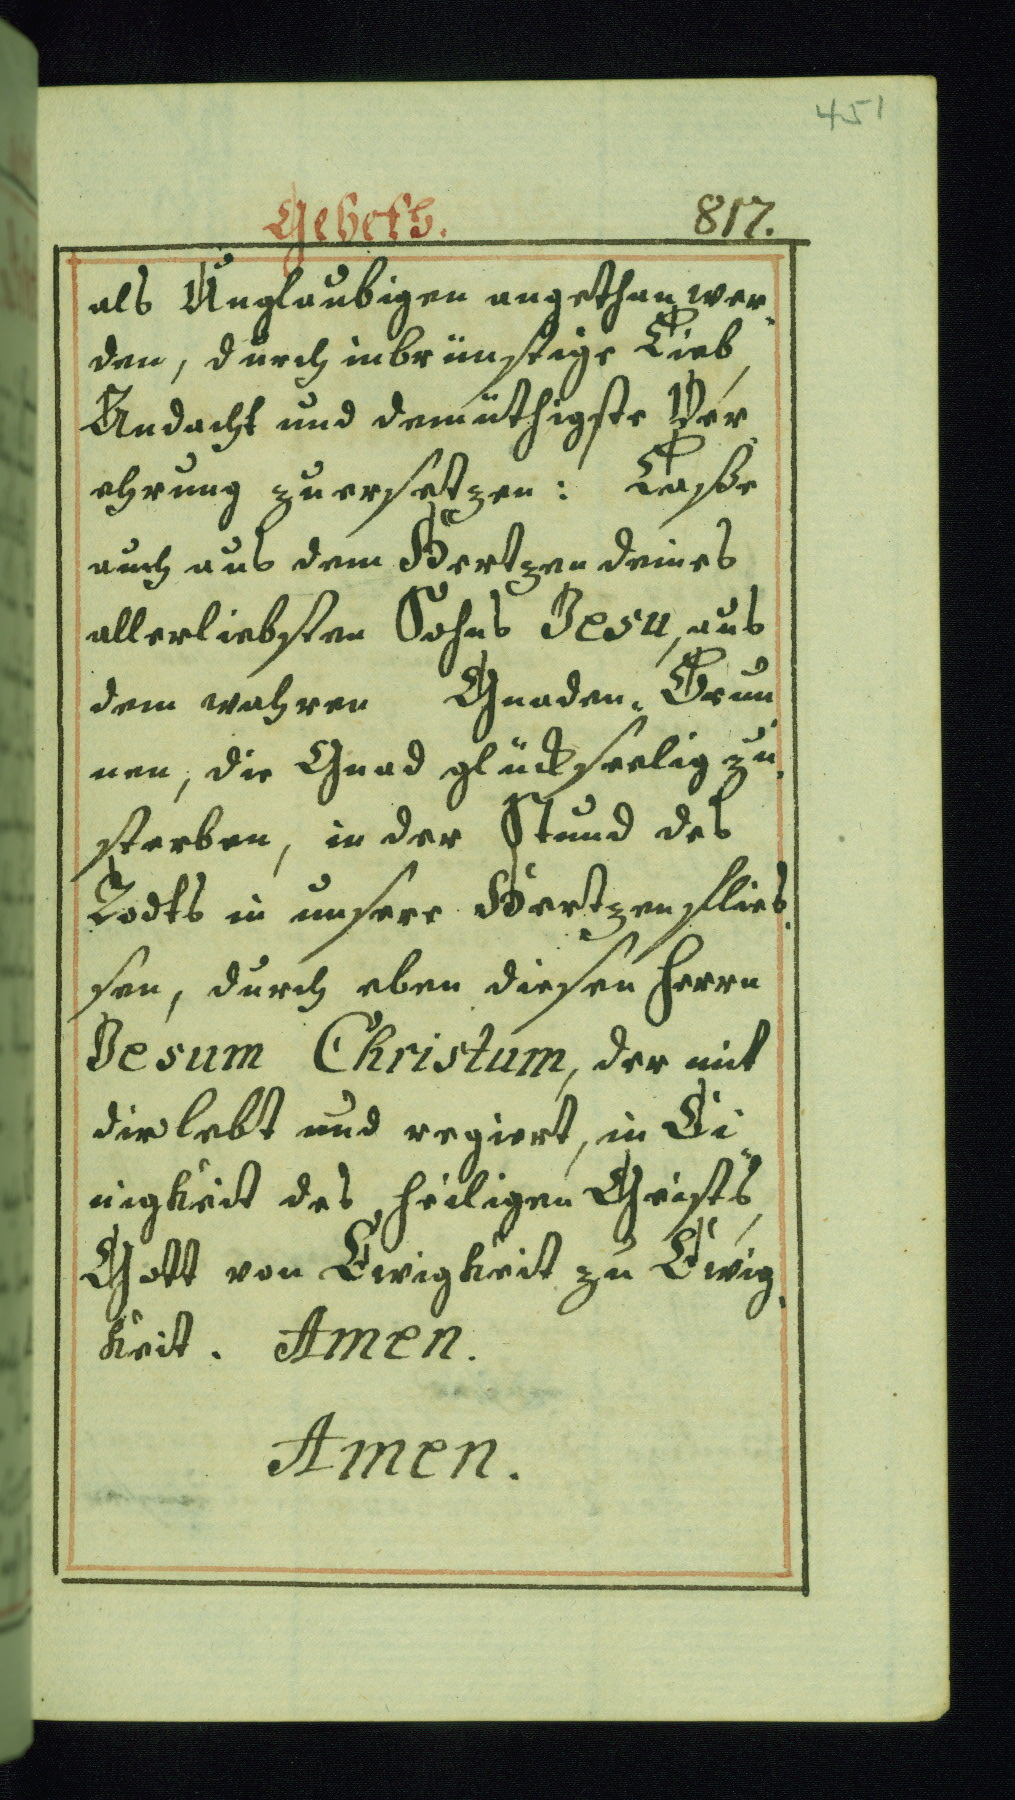 451
Gebeth. 817.
als Unglaubigen angethan wer-
den, durch inbrünstige Lieb,
Andacht und demüthigste Ver
ehrung zuersetzen: Lasse
auch aus dem Hertzen deines
allerliebsten Sohns Jesu, aus
dem wahren Gnaden-Brun
nen, die Gnad glückseelig zu
sterben, in der Stund des
Todts in unsere Hertzen flies-
sen, durch eben diesen Herrn
Jesum Christum, der mit
dir lebt und regiert, in Ei
nigkeit des heiligen Geists,
Gott von Ewigkeit zu Ewig-
keit. Amen.
Amen.